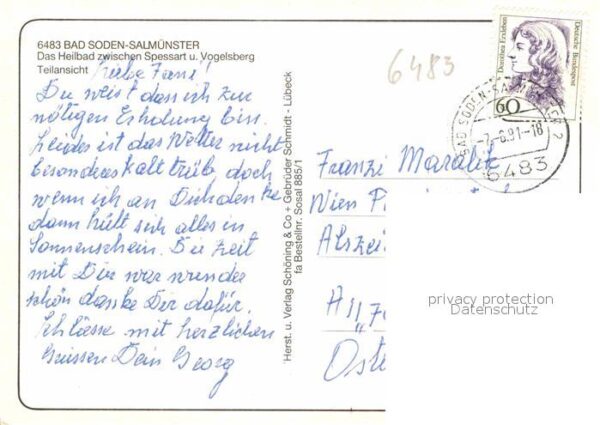 6483 BAD SODEN-SALMÜNSTER
Das Heilbad zwischen Spessart u. Vogelsberg
Teilansicht
Liebe Franzi!
Du weist dass ich zur
nötigen Erholung bin.
Leider ist das Wetter nicht
besonders kalt trüb, doch
wenn ich an Dich denke
dann hüllt sich alles in
Sonnenschein. Die Zeit
mit Dir war wunder
schön danke Dir dafür.
Schliesse mit herzlichen
Grüssen Dein Georg
Herst. u. Verlag Schöning & Co + Gebrüder Schmidt - Lübeck
fa Bestellnr. Sosal 885/1
6483
Dorothea Erxleben
Deutsche Bundespost
60
BAD SODEN-SALMÜNSTER 2
-7.-6.91-18
6483
Franzi
Wien
A
privacy protection
Datenschutz